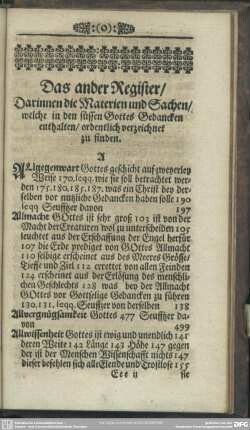 :(o):
Das ander Register/
Darinnen die Materien und Sachen/
welche in den süssen Gottes Gedancken
enthalten/ ordentlich verzeichnet
zu finden.
A
Allgegenwart Gottes geschicht auf zweyerley
Weise 170. seqq. wie sie soll betrachtet wer-
den 175. 180. 185. 187. was ein Christ bey der-
selben vor nutzliche Gedancken haben solle 190
seqq Seuffzer davon 197
Allmacht GOttes ist sehr groß 103 ist von der
Macht der Creaturen wol zu unterscheiden 105
leuchtet aus der Erschaffung der Engel herfür
107 die Erde prediget von GOttes Allmacht
110 selbige erscheinet aus des Meeres Grösse/
Tieffe und Ziel 112 errettet von allen Feinden
124 erscheinet aus der Erlösung des menschli-
chen Geschlechts 128 was bey der Allmacht
GOttes vor Gottselige Gedancken zu führen
130. 131. seqq. Seuffzer von derselben 138
Allvergnügsamkeit Gottes 477 Seuffzer da-
von 499
Allwissenheit Gottes ist ewig und unendlich 141
deren Weite 142 Länge 143 Höhe 147 gegen
der ist der Menschen Wissenschafft nichts 147
dieser befehlen sich alle Elende und Trostlose 155
sie